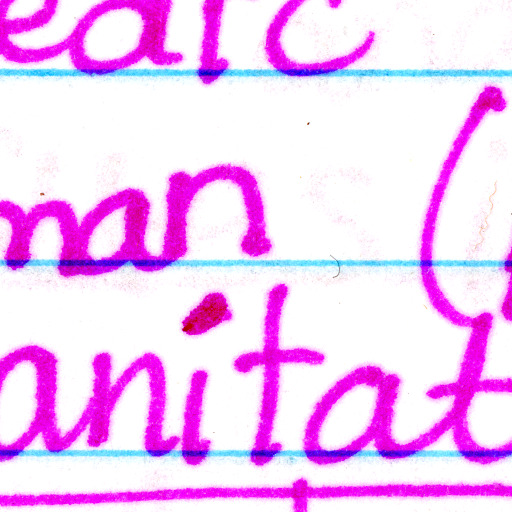 earc
man (
anitat